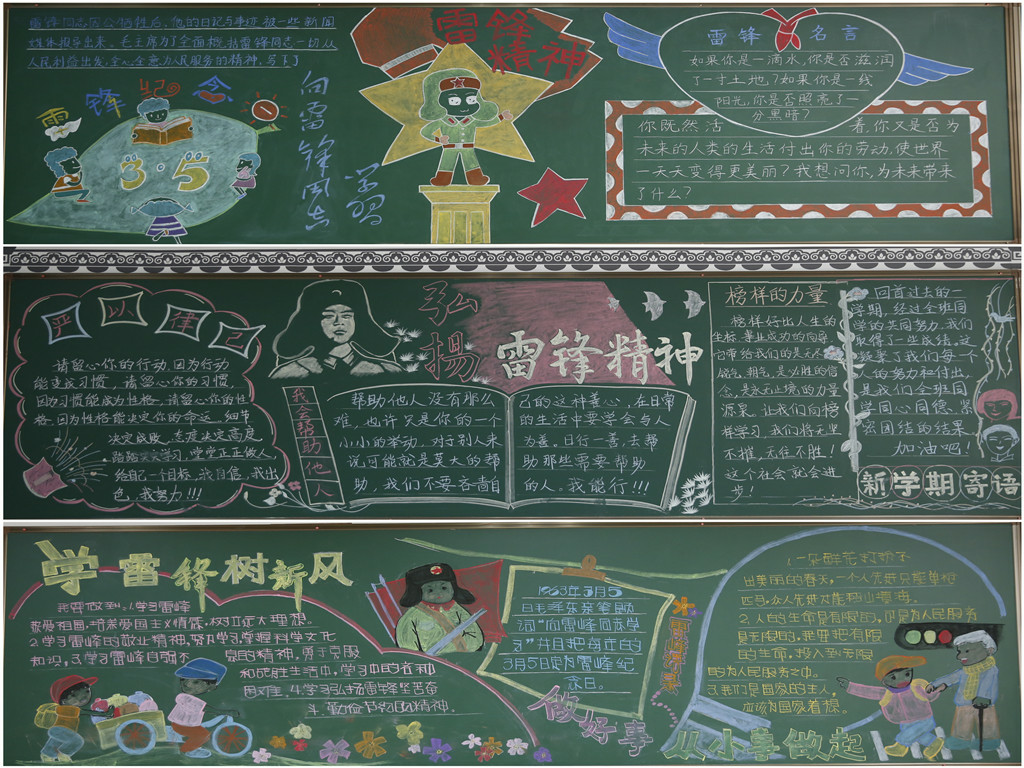 雷锋同志因公牺牲后,他的日记与事迹被一些新闻
媒体报导出来。毛主席为了全面概括雷锋同志一切从
人民利益出发,全心全意为人民服务的精神,写下了
向雷锋同志
学习
雷锋纪念
3·5
雷锋
精神
雷锋名言
如果你是一滴水,你是否滋润
了一寸土地?如果你是一线
阳光,你是否照亮了一
分黑暗?
你既然活着,你又是否为
未来的人类的生活付出你的劳动,使世界
一天天变得更美丽?我想问你,为未来带来
了什么?
严以律己
请留心你的行动,因为行动
能变成习惯,请留心你的习惯,
因为习惯能成为性格,请留心你的性
格,因为性格能决定你的命运。细节
决定成败,态度决定高度。
踏踏实实学习,堂堂正正做人
给自己一个目标,我自信,我出
色,我努力!!!
弘扬
雷锋精神
我会帮助他人
帮助他人没有那么
难,也许只是你的一个
小小的举动,对于别人来
说可能就是莫大的帮
助,我们不要吝啬自
己的这种善心,在日常
的生活中要学会与人
为善。日行一善,去帮
助那些需要帮助
的人。我能行!!!
榜样的力量
榜样好比人生的
坐标,事业成功的向导
它带给我们的是无尽
锐气,朝气,是必胜的信
念,是永无止境的力量
源泉,让我们向榜
样学习,我们将无坚
不摧,无往不胜!
这个社会就会进
步!
回首过去的一
学期,经过全班同
学的共同努力,我们
取得了一些成绩,这
凝聚了我们每一个
人的努力和付出,
是我们全班同
学同心同德,紧
密团结的结果
加油吧!
新学期寄语
学雷锋树新风
我要做到:1.学习雷峰
热爱祖国,培养爱国主义情怀,树立远大理想。
2.学习雷峰的敬业精神,努力学习,掌握科学文化
知识,3.学习雷峰自强不息的精神,勇于克服
和战胜生活中,学习中的各种
困难,4.学习弘扬雷锋坚苦奋
斗.勤俭节约的精神。
1963年3月5
日毛泽东亲笔题
词"向雷峰同志学
习"并且把每年的
3月5日定为雷峰纪
念日。
做好事
1.一朵鲜花打扮不
出美丽的春天,一个人先进只能单枪
匹马,众人先进才能移山填海。
2.人的生命是有限的,可是为人民服务
是无限的,我要把有限
的生命,投入到无限
的为人民服务之中。
3.我们是国家的主人,
应该为国家着想。
从小事做起